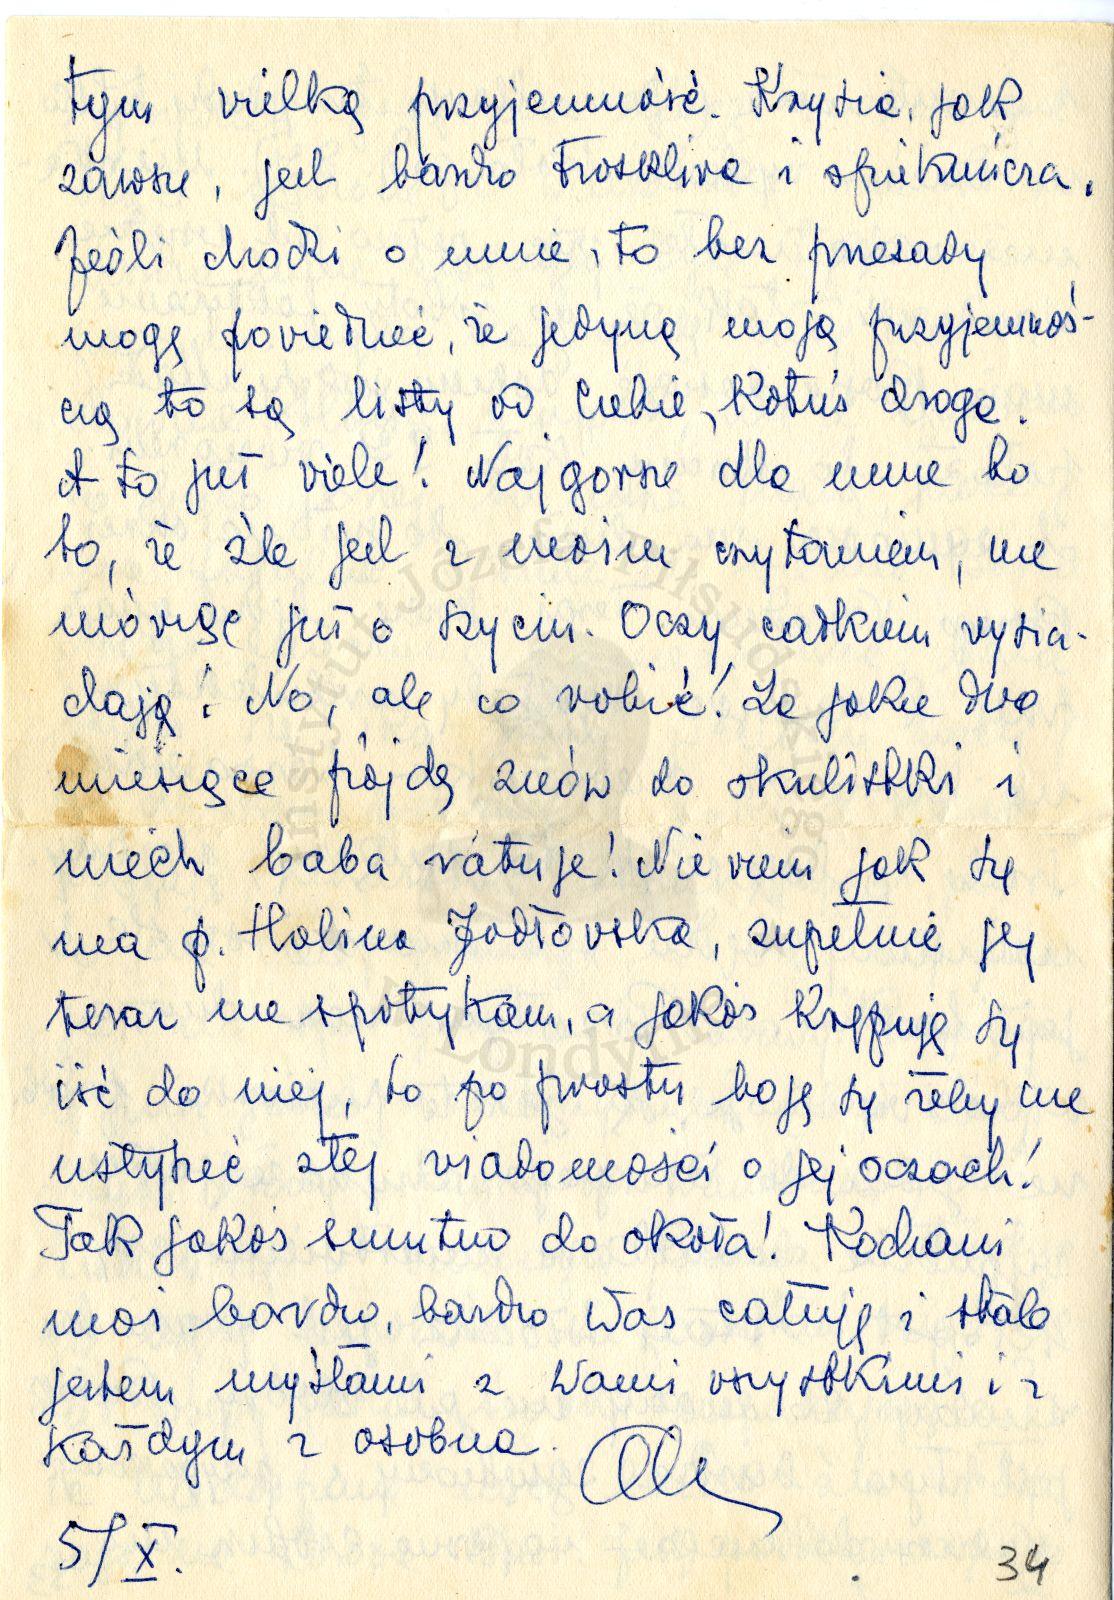 tym wielką przyjemność. Krysia, jak
zawsze, jest bardzo troskliwa i opiekuńcza.
Jeśli chodzi o mnie, to bez przesady
mogę powiedzieć, że jedyną moją przyjemnoś-
cią to są listy od Ciebie, Kotuś droga.
A to już wiele! Najgorsze dla mnie to
to, że źle jest z moim czytaniem, nie
mówiąc już o szyciu. Oczy całkiem wysia-
dają! No, ale co robić! Za jakie dwa
miesiące pójdę znów do okulistki i
niech baba ratuje! Nie wiem jak się
ma p. Halina Jodłowska, zupełnie jej
teraz nie spotykam, a jakoś krępuję się
iść do niej, bo po prostu boję się żeby nie
usłyszeć złej wiadomości o jej oczach!
Tak jakoś smutno do okoła! Kochani
moi bardzo, bardzo Was całuję i stale
jestem myślami z Wami wszystkimi i z
każdym z osobna.
Ola
5/X.
34
Instytut Józefa Piłsudskiego
Londyn